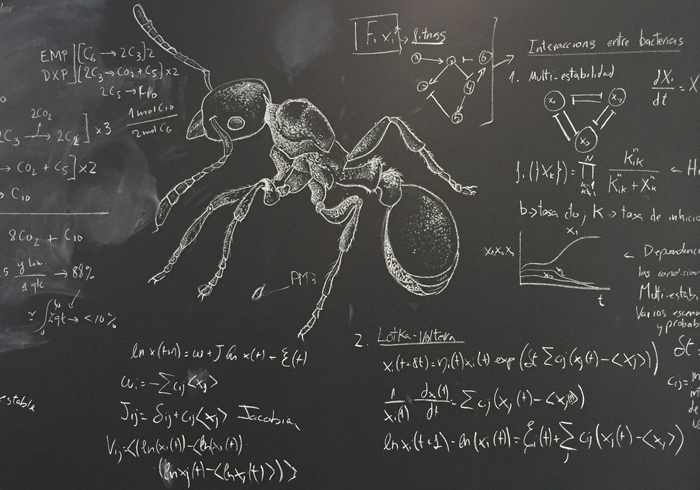 EMP ][C6 → 2C3]2
DXP ][2C3 → CO2 + C5] x2
2C5 → C10
1 mol C10
2 mol C6
2CO2
2C3 → 2C2] x3
→ CO2 + C5] x2
→ C10
8CO2 + C10
→ 88%
→ <10%
Fi xi → fitness
Interaccions entre bacteries
1. Multi-estabilidad
dXi/dt = X
fi({Xk}) = ∏ K^n_ik / (K^n_ik + X^n_k)
b → tasa cto, K → tasa de inhibic
x1
x1 x2 x3
t
← Dependenc
las condicion
Multi-estab
Varios escena
y probab
2. Lotka-Volterra
xi(t+δt) = ηi(t) xi(t) exp(δt Σ cij (xj(t) - <xj>))
1/xi(t) dxi(t)/dt = Σ cij (xj(t) - <xj>)
ln xi(t+1) - ln(xi(t)) = ξi(t) + Σj cij (xj(t) - <xj>)
δt
cij =
ln x(t+1) = ω + J ln x(t) + ξ(t)
ωi = -Σ cij <xj>
Jij = δij + cij <xj> Jacobian
Vij = <(ln(xi(t) - <ln xi(t)
(ln xj(t) - <ln xj(t)>)>
-estable